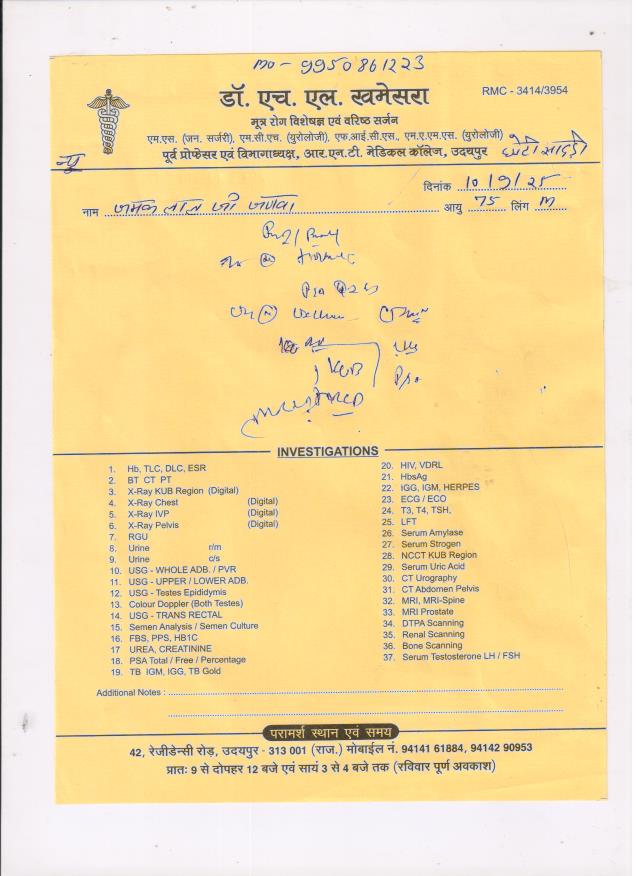 mo - 9950861223
डॉ. एच. एल. खमेसरा
RMC - 3414/3954
मूत्र रोग विशेषज्ञ एवं वरिष्ठ सर्जन
एम.एस. (जन. सर्जरी), एम.सी.एच. (युरोलोजी), एफ.आई.सी.एस., एम.ए.एम.एस. (युरोलोजी)
पूर्व प्रोफेसर एवं विभागाध्यक्ष, आर.एन.टी. मेडिकल कॉलेज, उदयपुर
छोटी सादड़ी
न्यु
दिनांक 10/9/25
नाम लाल जी जणवा आयु 75 लिंग M
PSA
KUB
INVESTIGATIONS
1. Hb, TLC, DLC, ESR
2. BT CT PT
3. X-Ray KUB Region (Digital)
4. X-Ray Chest (Digital)
5. X-Ray IVP (Digital)
6. X-Ray Pelvis (Digital)
7. RGU
8. Urine r/m
9. Urine c/s
10. USG - WHOLE ADB. / PVR
11. USG - UPPER / LOWER ADB.
12. USG - Testes Epididymis
13. Colour Doppler (Both Testes)
14. USG - TRANS RECTAL
15. Semen Analysis / Semen Culture
16. FBS, PPS, HB1C
17 UREA, CREATININE
18. PSA Total / Free / Percentage
19. TB IGM, IGG, TB Gold
20. HIV, VDRL
21. HbsAg
22. IGG, IGM, HERPES
23. ECG / ECO
24. T3, T4, TSH,
25. LFT
26. Serum Amylase
27. Serum Strogen
28. NCCT KUB Region
29. Serum Uric Acid
30. CT Urography
31. CT Abdomen Pelvis
32. MRI, MRI-Spine
33. MRI Prostate
34. DTPA Scanning
35. Renal Scanning
36. Bone Scanning
37. Serum Testosterone LH / FSH
Additional Notes :
परामर्श स्थान एवं समय
42, रेजीडेन्सी रोड़, उदयपुर - 313 001 (राज.) मोबाईल नं. 94141 61884, 94142 90953
प्रातः 9 से दोपहर 12 बजे एवं सायं 3 से 4 बजे तक (रविवार पूर्ण अवकाश)